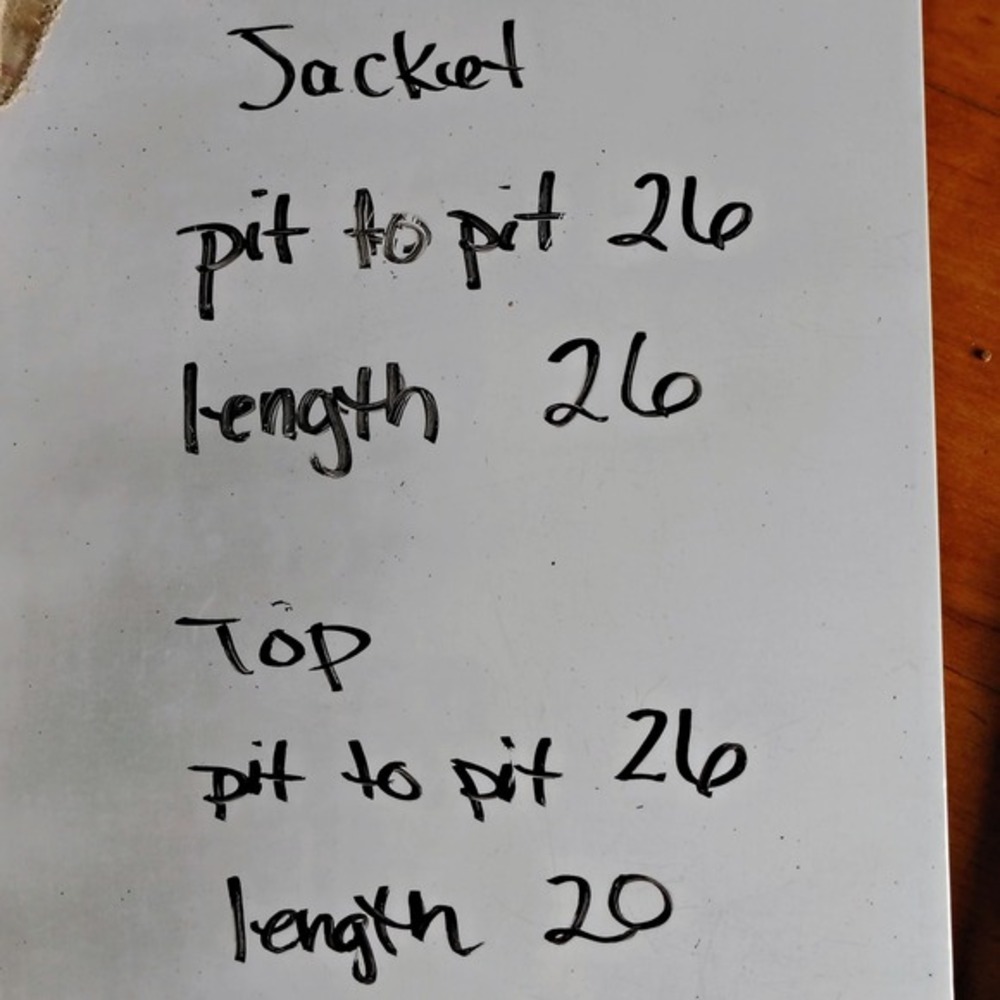 Jacket
pit to pit 26
length 26
Top
pit to pit 26
length 20